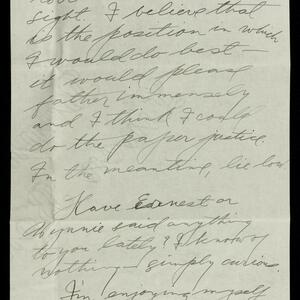 sight. I believe that
is the position in which
I would do best—
it would please
father immensely
and I think I could
do the paper justice.
In the meantime, lie low.
Have Earnest or
Wynnie said anything
to you lately? I know of
nothing — simply curious.
I'm enjoying myself